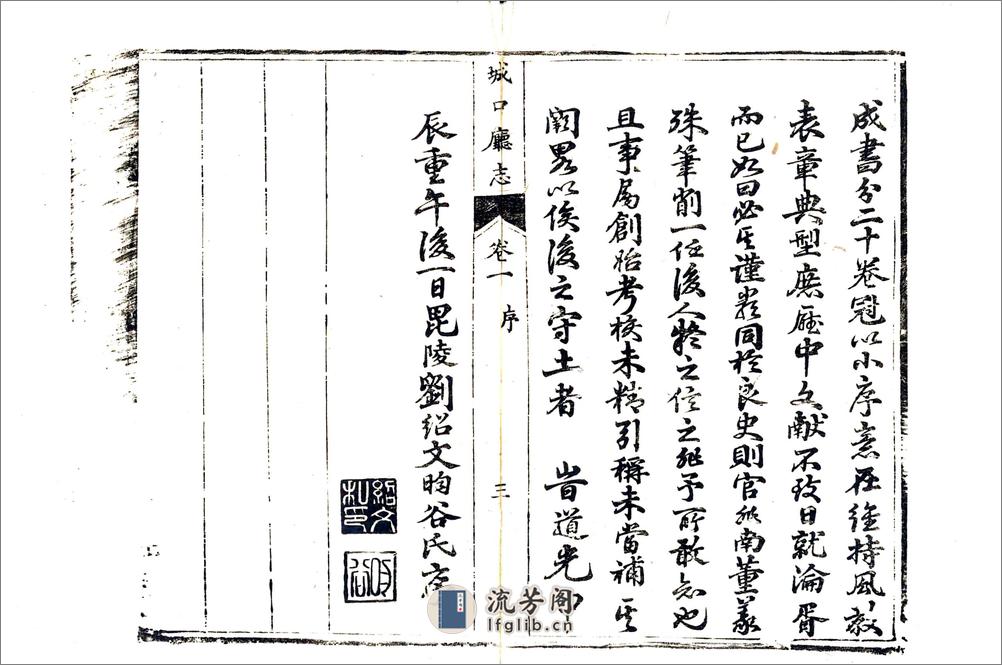 成書分二十卷冠以小序意在維持風教
表章典型庶廳中文獻不致日就淪胥
而已如曰必其謹嚴同於良史則官非南董義
殊筆削一任後人疑之信之非予所敢知也
且事屬創始考核未精引稱未當補其
闕畧以俟後之守土者 旹道光甲
城口廳志 卷一 序 三
辰重午後一日毘陵劉紹文昀谷氏序
紹文私印
昀谷
流芳阁
lfglib.cn